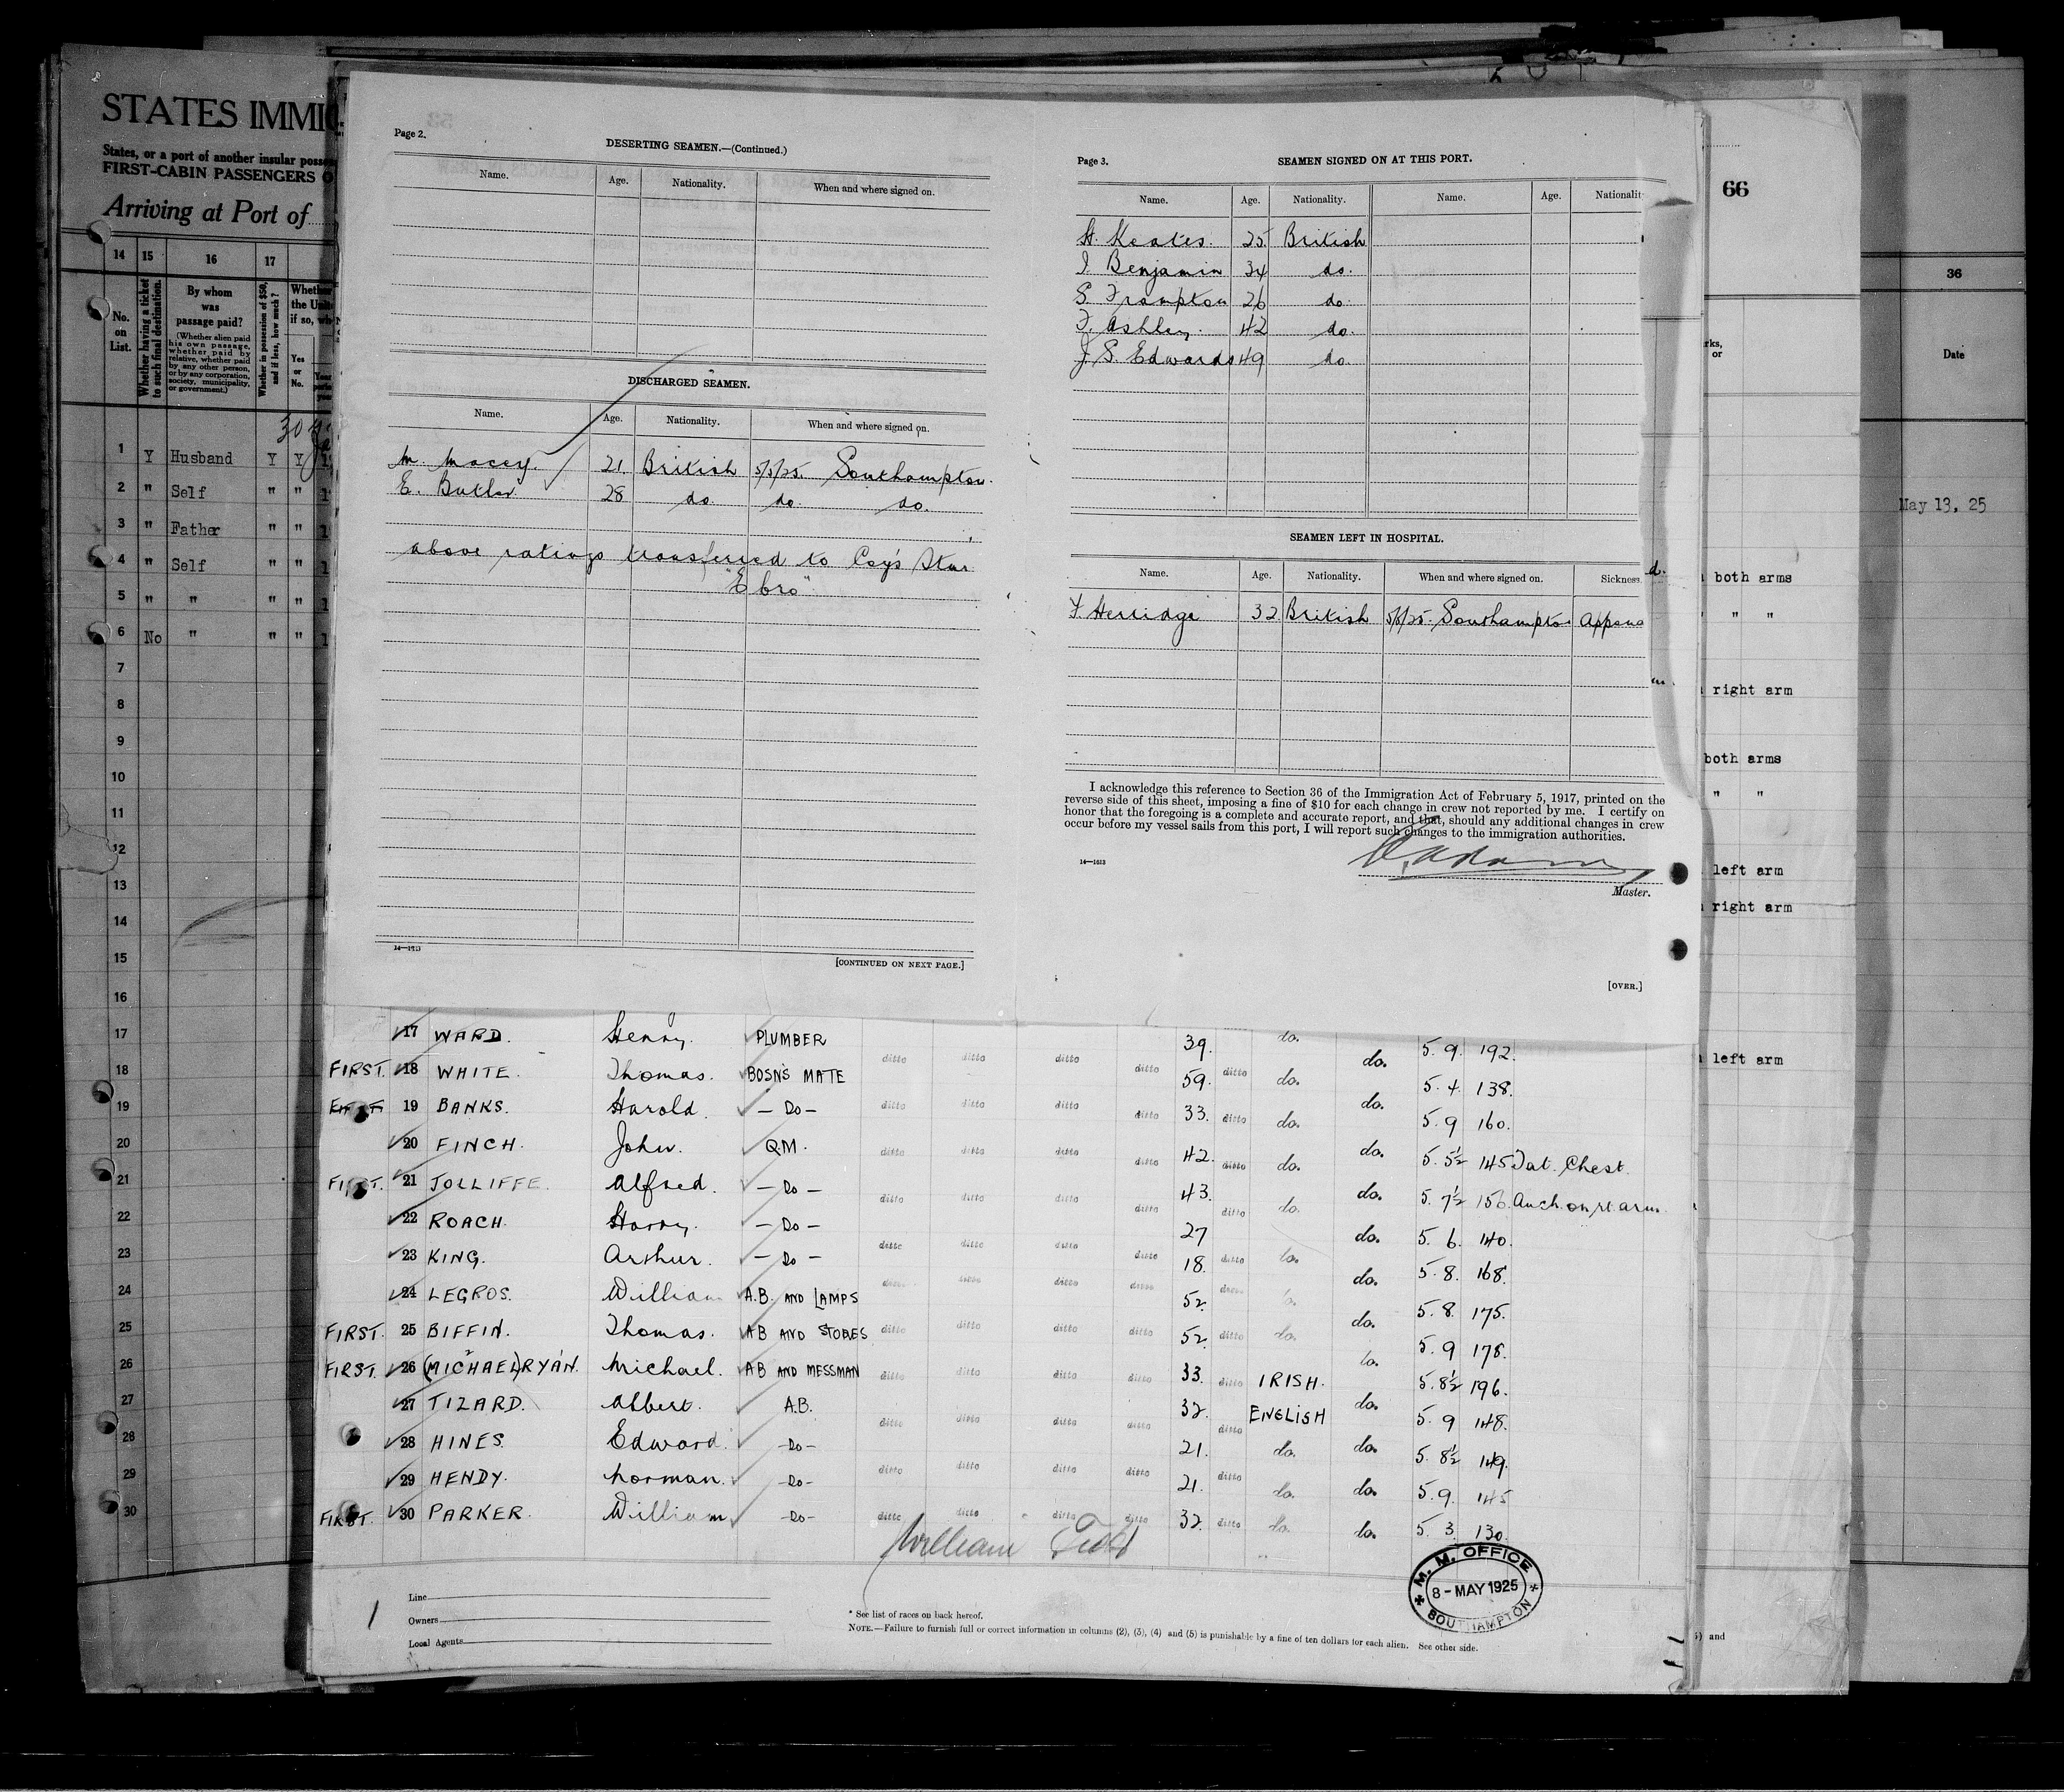 STATES IMMIG
States, or a port of another insular posse
FIRST-CABIN PASSENGERS O
Arriving at Port of
14 15 16 17
No. on List.
Whether having a ticket to such final destination.
By whom was passage paid?
(Whether alien paid his own passage, whether paid by relative, whether paid by any other person, or by any corporation, society, municipality, or government.)
Whether in possession of $50, and if less, how much?
Whether
the Unit
if so, wh
Yes or No.
1 Y Husband Y Y 1
2 " Self " " 1
3 " Father " " 1
4 " Self " " 1
5 " " " " 1
6 No " " " 1
7
8
9
10
11
12
13
14
15
16
17
18
19
20
21
22
23
24
25
26
27
28
29
30
Page 2.
DESERTING SEAMEN.—(Continued.)
Name. Age. Nationality. When and where signed on.
DISCHARGED SEAMEN.
Name. Age. Nationality. When and where signed on.
M. Macey. 21 British 5/5/25. Southampton.
E. Butler 28 do. do. do.
above ratings transferred to Coy's Stmr
"Ebro"
14—1613
[CONTINUED ON NEXT PAGE.]
Page 3.
SEAMEN SIGNED ON AT THIS PORT.
Name. Age. Nationality. Name. Age. Nationalit
H. Keates. 25 British
I. Benjamin 34 do.
S. Frampton 26 do.
F. Ashley. 42 do.
J. S. Edwards 49 do.
SEAMEN LEFT IN HOSPITAL.
Name. Age. Nationality. When and where signed on. Sickness.
F. Herridge 32 British 5/5/25. Southampton Appen
I acknowledge this reference to Section 36 of the Immigration Act of February 5, 1917, printed on the
reverse side of this sheet, imposing a fine of $10 for each change in crew not reported by me. I certify on
honor that the foregoing is a complete and accurate report, and that, should any additional changes in crew
occur before my vessel sails from this port, I will report such changes to the immigration authorities.
14—1613
Master.
[OVER.]
17 WARD. Henry. PLUMBER 39. do. 5. 9. 192.
FIRST. 18 WHITE. Thomas. BOSN'S MATE ditto ditto ditto ditto 59. ditto do. do. 5. 4. 138.
FIRST. 19 BANKS. Harold. —Do— ditto ditto ditto ditto 33. ditto do. do. 5. 9 160.
20 FINCH. John. Q.M. ditto ditto ditto ditto 42. ditto do. do. 5. 5½ 145 Tat. Chest.
FIRST. 21 JOLLIFFE. Alfred. —Do— ditto ditto ditto ditto 43. ditto do. do. 5. 7½ 156. Anch. on rt. arm.
22 ROACH. Harry. —Do— 27 do. 5. 6. 140.
23 KING. Arthur. —Do— ditto ditto ditto ditto 18. ditto do. 5. 8. 168.
24 LEGROS. William A.B. AND LAMPS ditto ditto ditto ditto 52. ditto do. do. 5. 8. 175.
FIRST. 25 BIFFIN. Thomas. AB AND STORES ditto ditto ditto ditto 52. ditto do. do. 5. 9 178.
FIRST. 26 (MICHAEL) RYAN. Michael. AB AND MESSMAN ditto ditto ditto ditto 33. ditto IRISH. do. 5. 8½ 196.
27 TIZARD. Albert. A.B. 32. ENGLISH do. 5. 9 148.
28 HINES. Edward. —Do— ditto ditto ditto ditto 21. ditto do. do. 5. 8½ 149.
29 HENDY. Norman. —Do— ditto ditto ditto ditto 21. ditto do. do. 5. 9. 145
FIRST. 30 PARKER. William —Do— ditto ditto ditto ditto 32. ditto do. do. 5. 3. 130.
William
Line
Owners
Local Agents
* See list of races on back hereof.
NOTE.—Failure to furnish full or correct information in columns (2), (3), (4) and (5) is punishable by a fine of ten dollars for each alien. See other side.
M. M. OFFICE
8 - MAY 1925
SOUTHAMPTON
66
rks,
or
both arms
" "
right arm
both arms
" "
left arm
right arm
left arm
) and
36
Date
May 13, 25